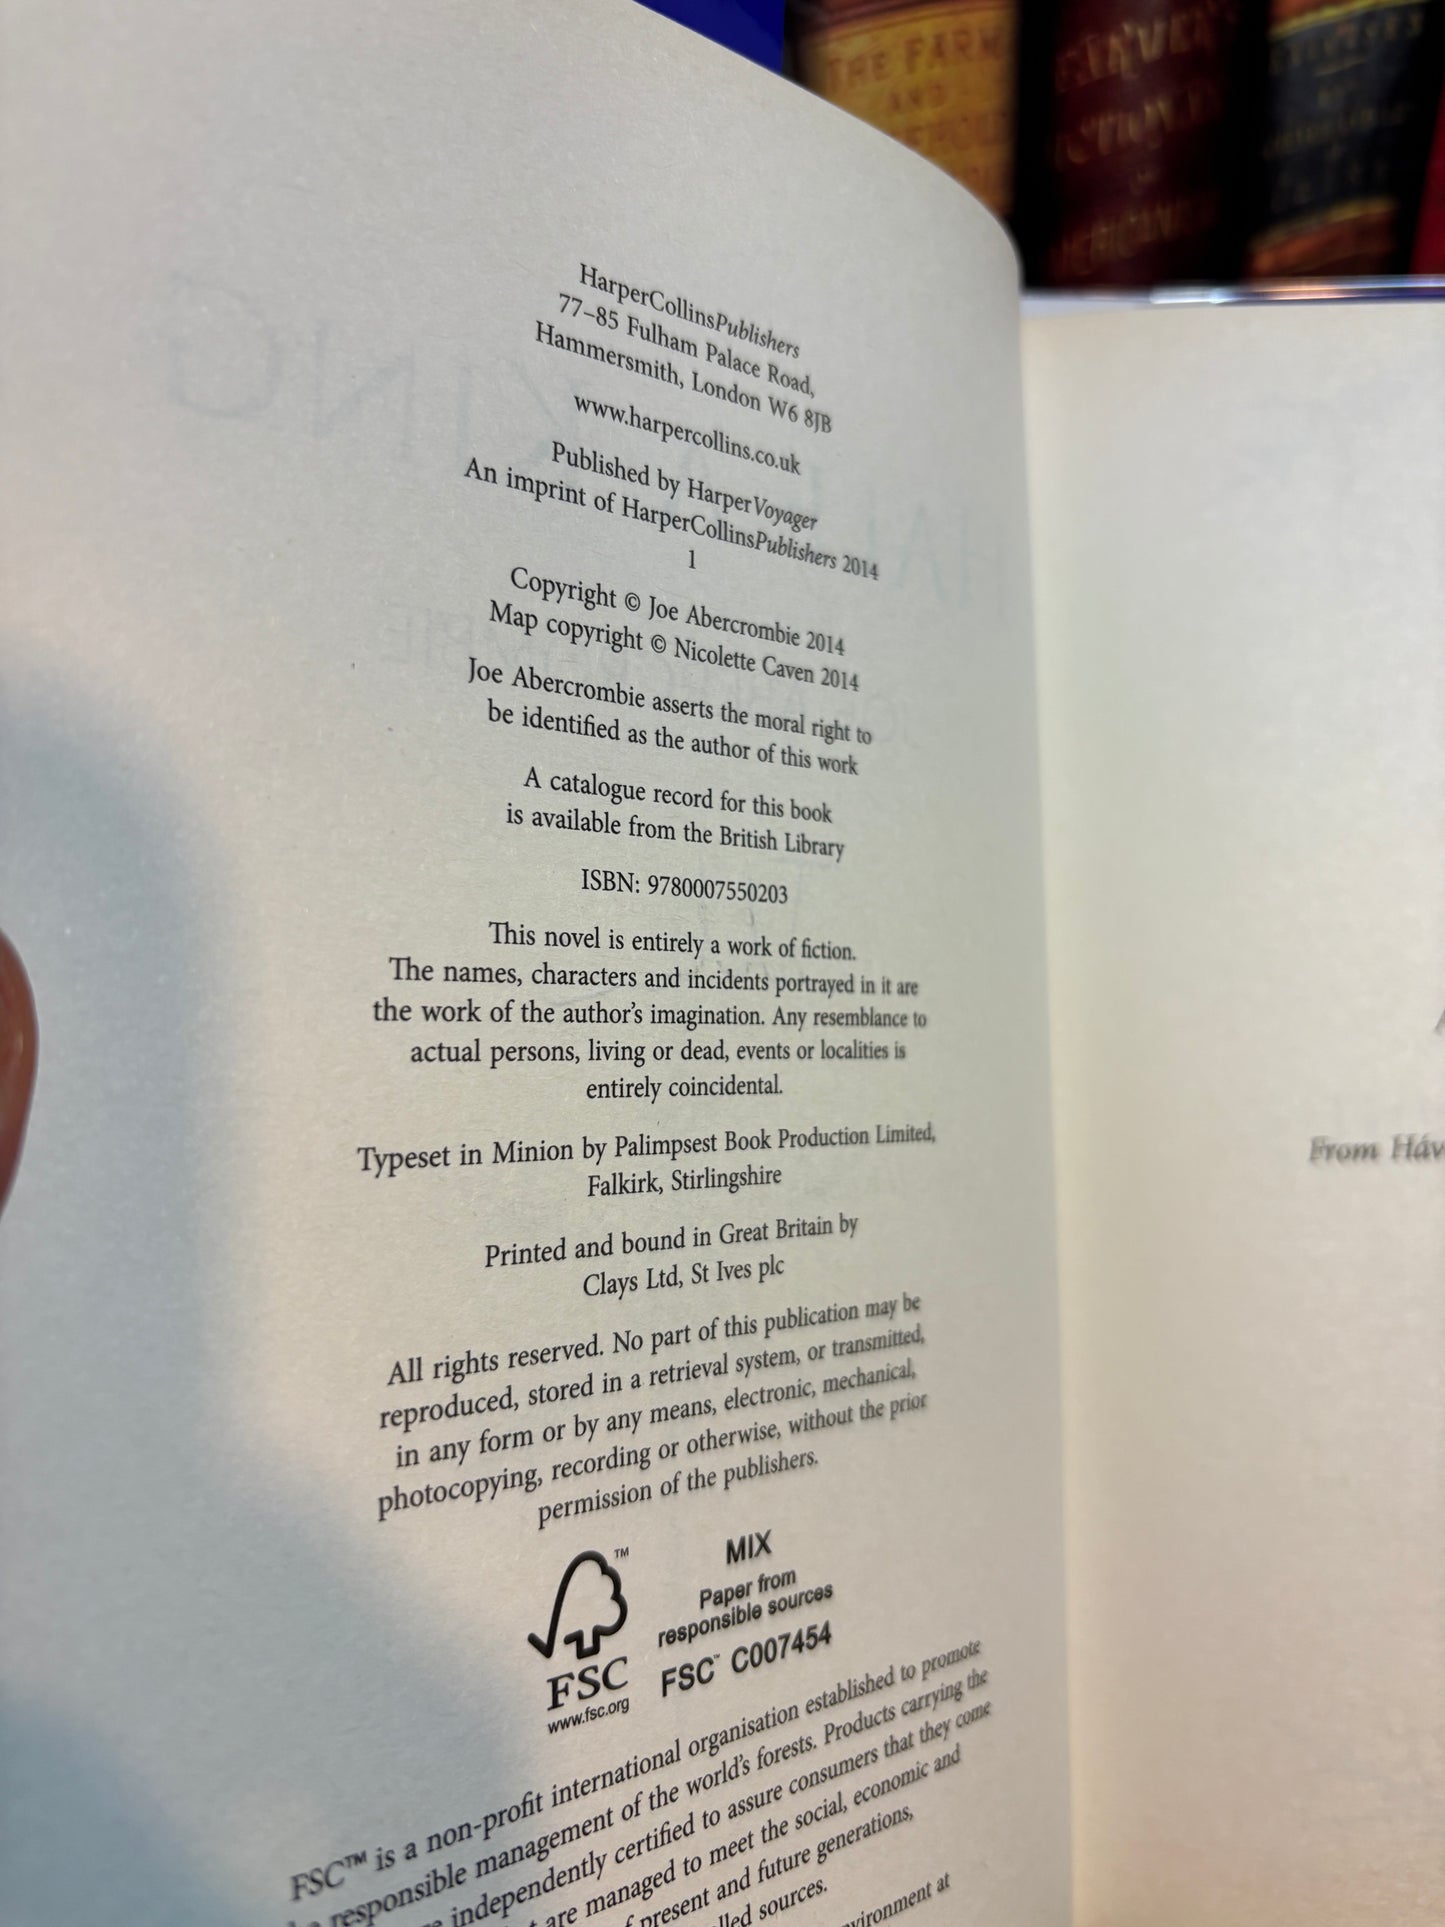 THE FARM
AND
HarperCollinsPublishers
77–85 Fulham Palace Road,
Hammersmith, London W6 8JB
www.harpercollins.co.uk
Published by HarperVoyager
An imprint of HarperCollinsPublishers 2014
1
Copyright © Joe Abercrombie 2014
Map copyright © Nicolette Caven 2014
Joe Abercrombie asserts the moral right to
be identified as the author of this work
A catalogue record for this book
is available from the British Library
ISBN: 9780007550203
This novel is entirely a work of fiction.
The names, characters and incidents portrayed in it are
the work of the author's imagination. Any resemblance to
actual persons, living or dead, events or localities is
entirely coincidental.
Typeset in Minion by Palimpsest Book Production Limited,
Falkirk, Stirlingshire
Printed and bound in Great Britain by
Clays Ltd, St Ives plc
All rights reserved. No part of this publication may be
reproduced, stored in a retrieval system, or transmitted,
in any form or by any means, electronic, mechanical,
photocopying, recording or otherwise, without the prior
permission of the publishers.
TM
FSC
www.fsc.org
MIX
Paper from
responsible sources
FSC™ C007454
FSC™ is a non-profit international organisation established to promote
responsible management of the world's forests. Products carrying the
independently certified to assure consumers that they come
are managed to meet the social, economic and
present and future generations,
sources.
at
From